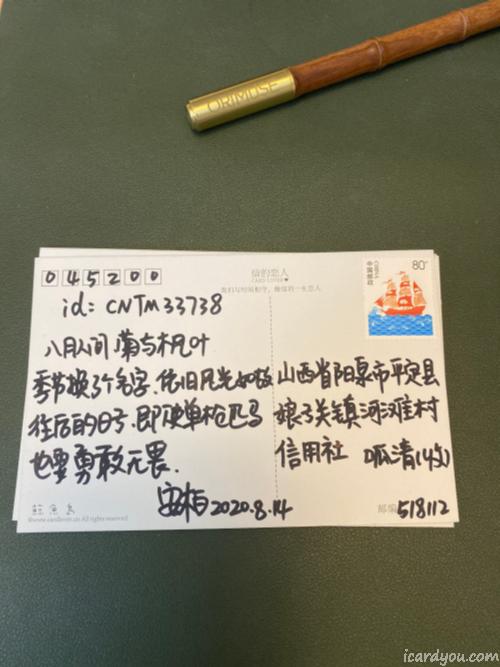 ORIMUSE
045200
信的恋人
CARD LOVER
我们与时间相守，做信的一生恋人
80分
中国邮政
CHINA
id: CNTM33738
八月人间 菊与枫叶
季节换了个名字.依旧风光如故
往后的日子.即使单枪匹马
也要勇敢无畏.
安柏 2020.8.14
山西省阳泉市平定县
娘子关镇河滩村
信用社 呱清(收)
©www.cardlover.cn All rights reserved
邮编 518112
icardyou.com